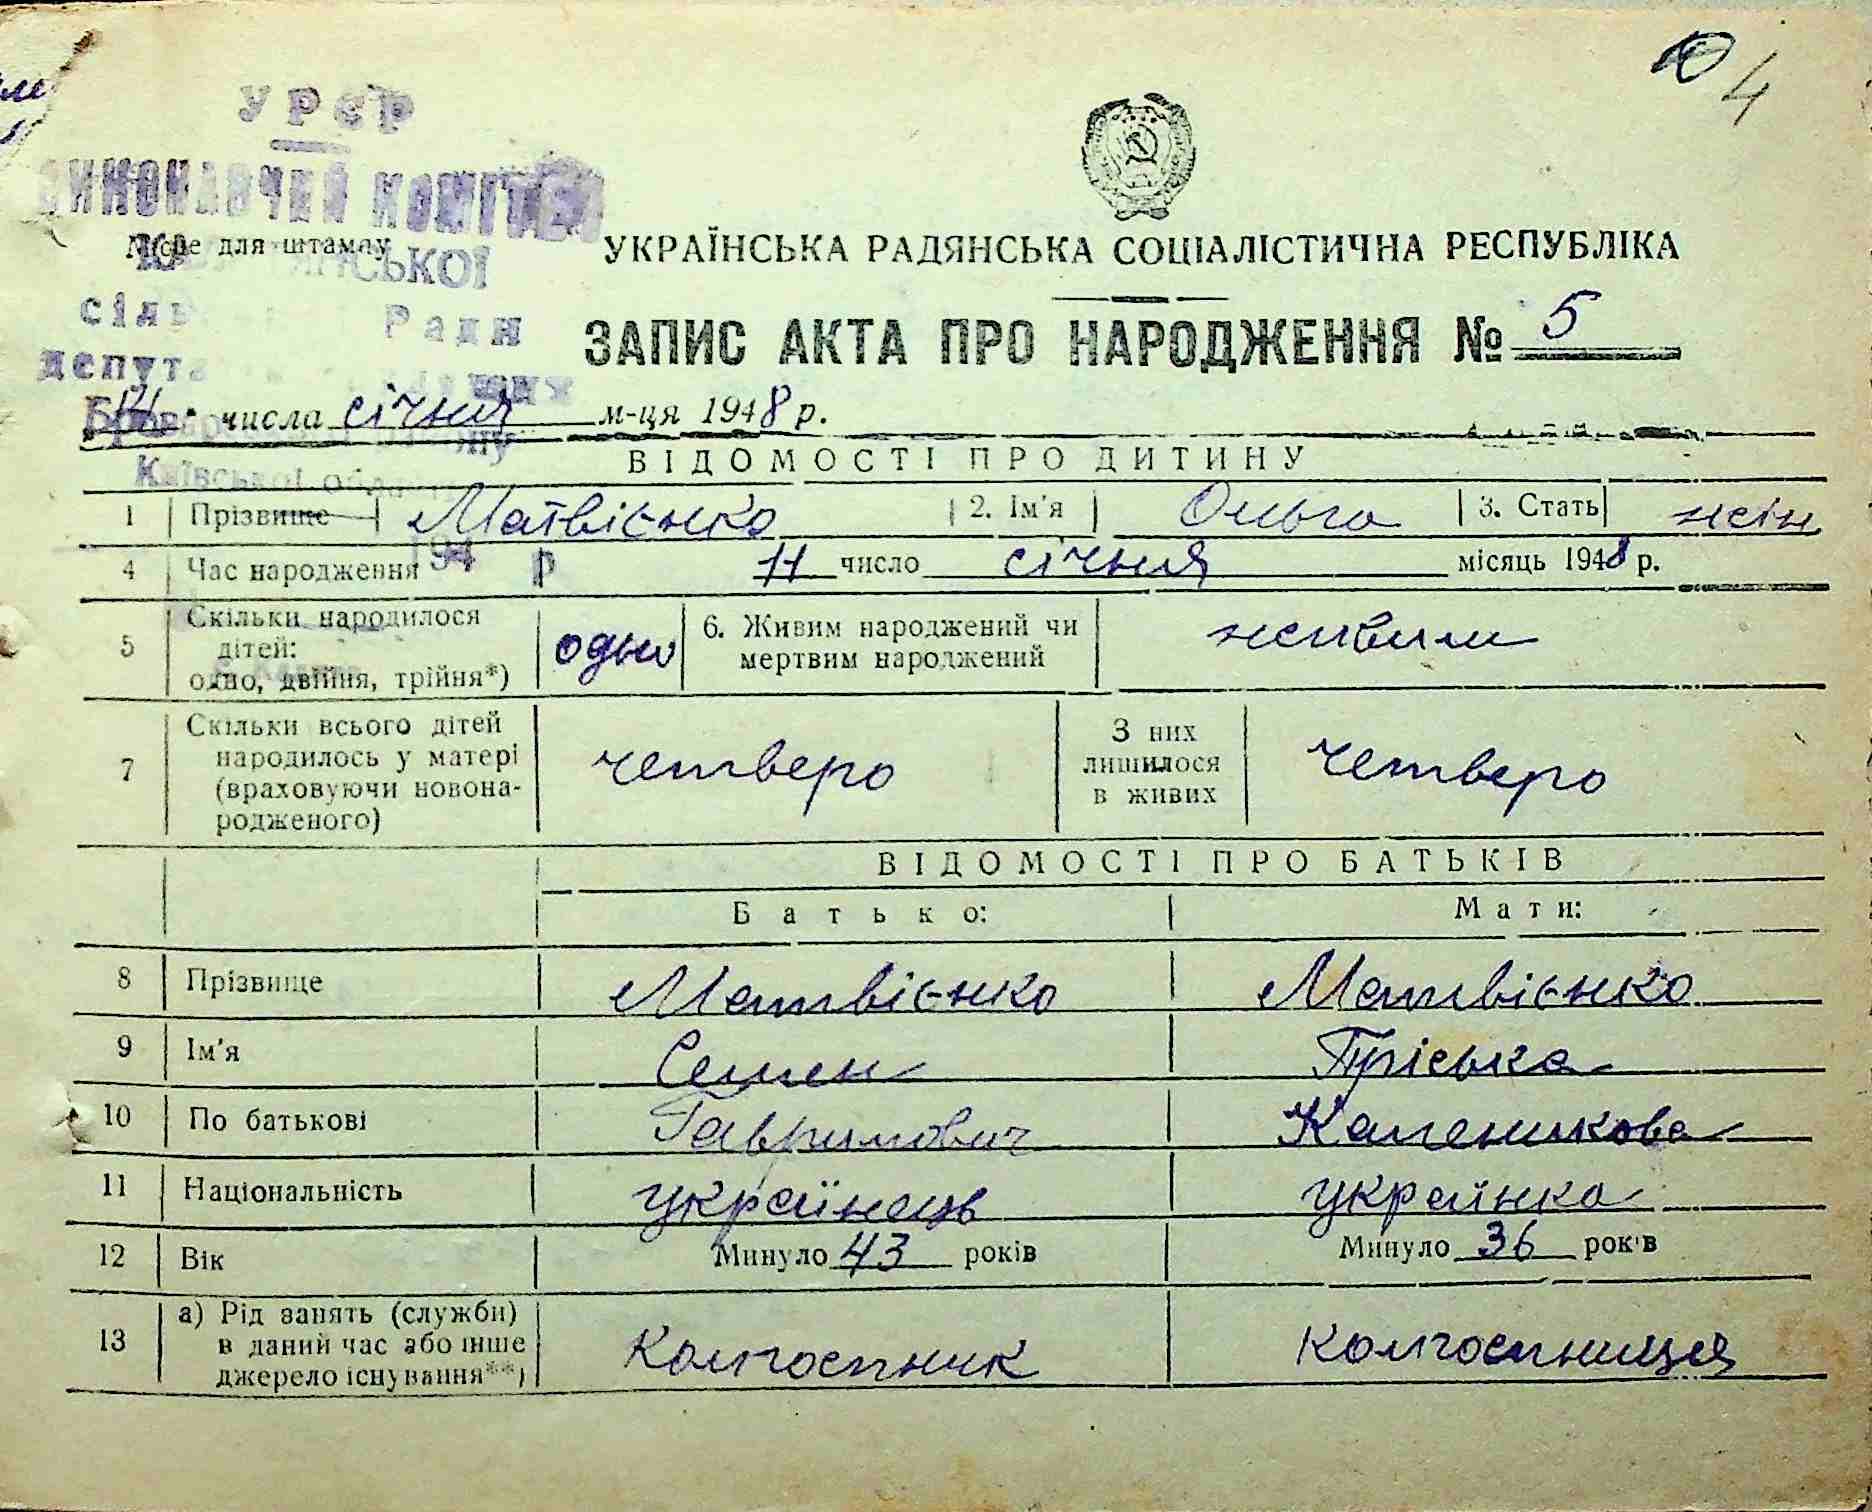 4
УРСР
ВИКОНАВЧИЙ КОМІТЕТ
Місце для штампу
УКРАЇНСЬКА РАДЯНСЬКА СОЦІАЛІСТИЧНА РЕСПУБЛІКА
Ради
ЗАПИС АКТА ПРО НАРОДЖЕННЯ № 5
числа січня м-ця 1948 р.
Київської області
ВІДОМОСТІ ПРО ДИТИНУ
1 Прізвище Матвієнко 2. Ім'я Ольга 3. Стать жін
194 р
4 Час народження 11 число січня місяць 1948 р.
5 Скільки народилося дітей: одно, двійня, трійня*) одно 6. Живим народжений чи мертвим народжений живим
7 Скільки всього дітей народилось у матері (враховуючи новона-родженого) четверо З них лишилося в живих четверо
ВІДОМОСТІ ПРО БАТЬКІВ
Батько: Мати:
8 Прізвище Матвієнко Матвієнко
9 Ім'я Семен Пріська
10 По батькові Гаврилович
11 Національність українець українка
12 Вік Минуло 43 років Минуло 36 років
13 а) Рід занять (служби) в даний час або інше джерело існування**) Колгоспник колгоспниця